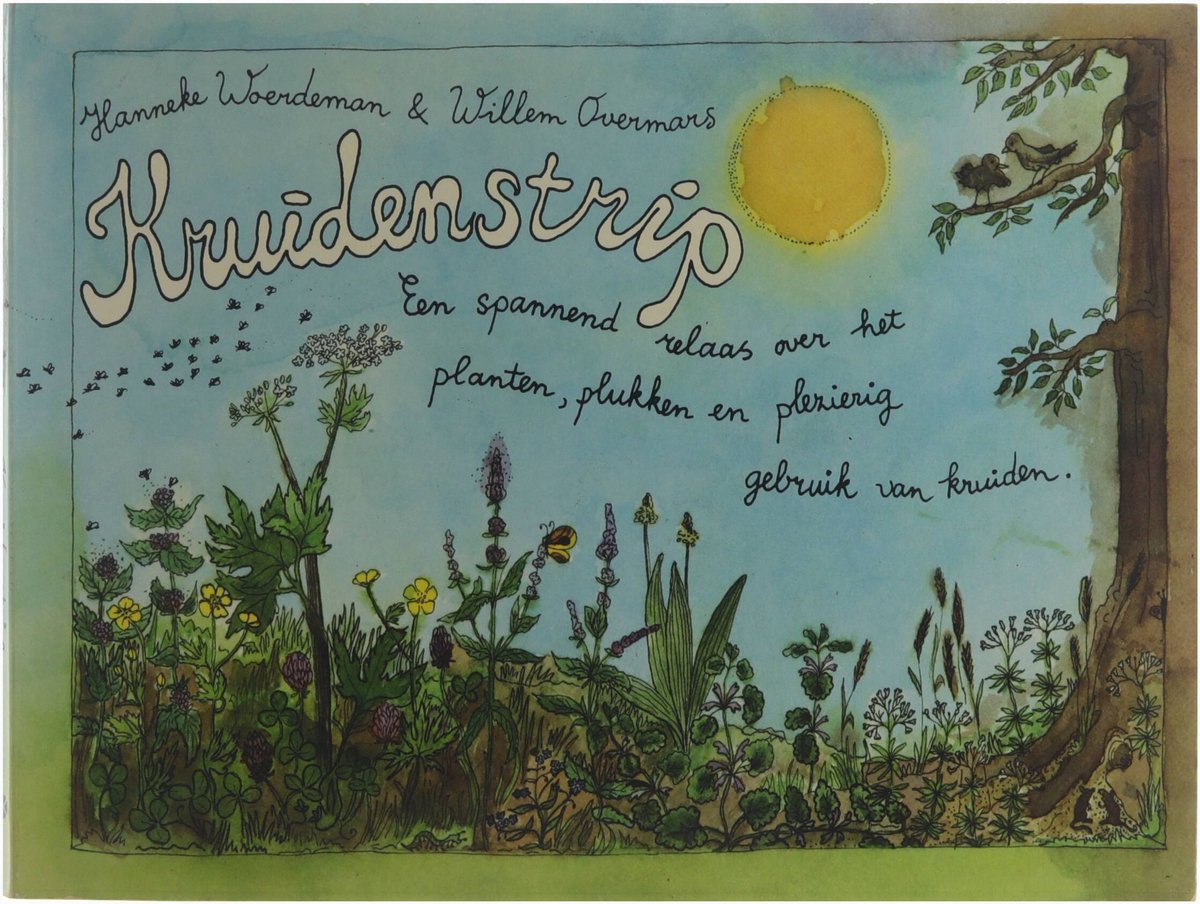 Hanneke Woerdeman & Willem Overmars
Kruidenstrip
Een spannend relaas over het
planten, plukken en plezierig
gebruik van kruiden.